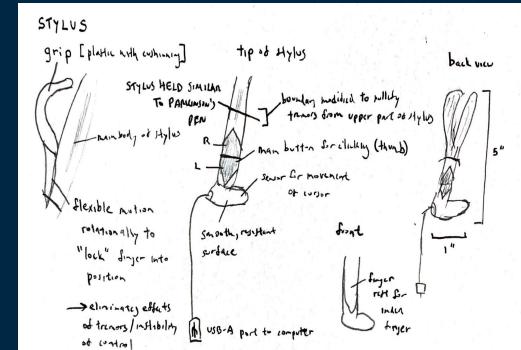 STYLUS
grip [plastic with cushioning]
main body of stylus
flexible motion
rotationally to
"lock" finger into
position
→ eliminates effects
of tremors/instability
of control
tip of stylus
STYLUS HELD SIMILAR
TO PARKINSON'S
PEN
boundary modified to nullify
tremors from upper part of stylus
R
L
main button for clicking (thumb)
sensor for movement
of cursor
smooth, resistant
surface
USB-A port to computer
back view
5"
1"
front
finger
rest for
index
finger